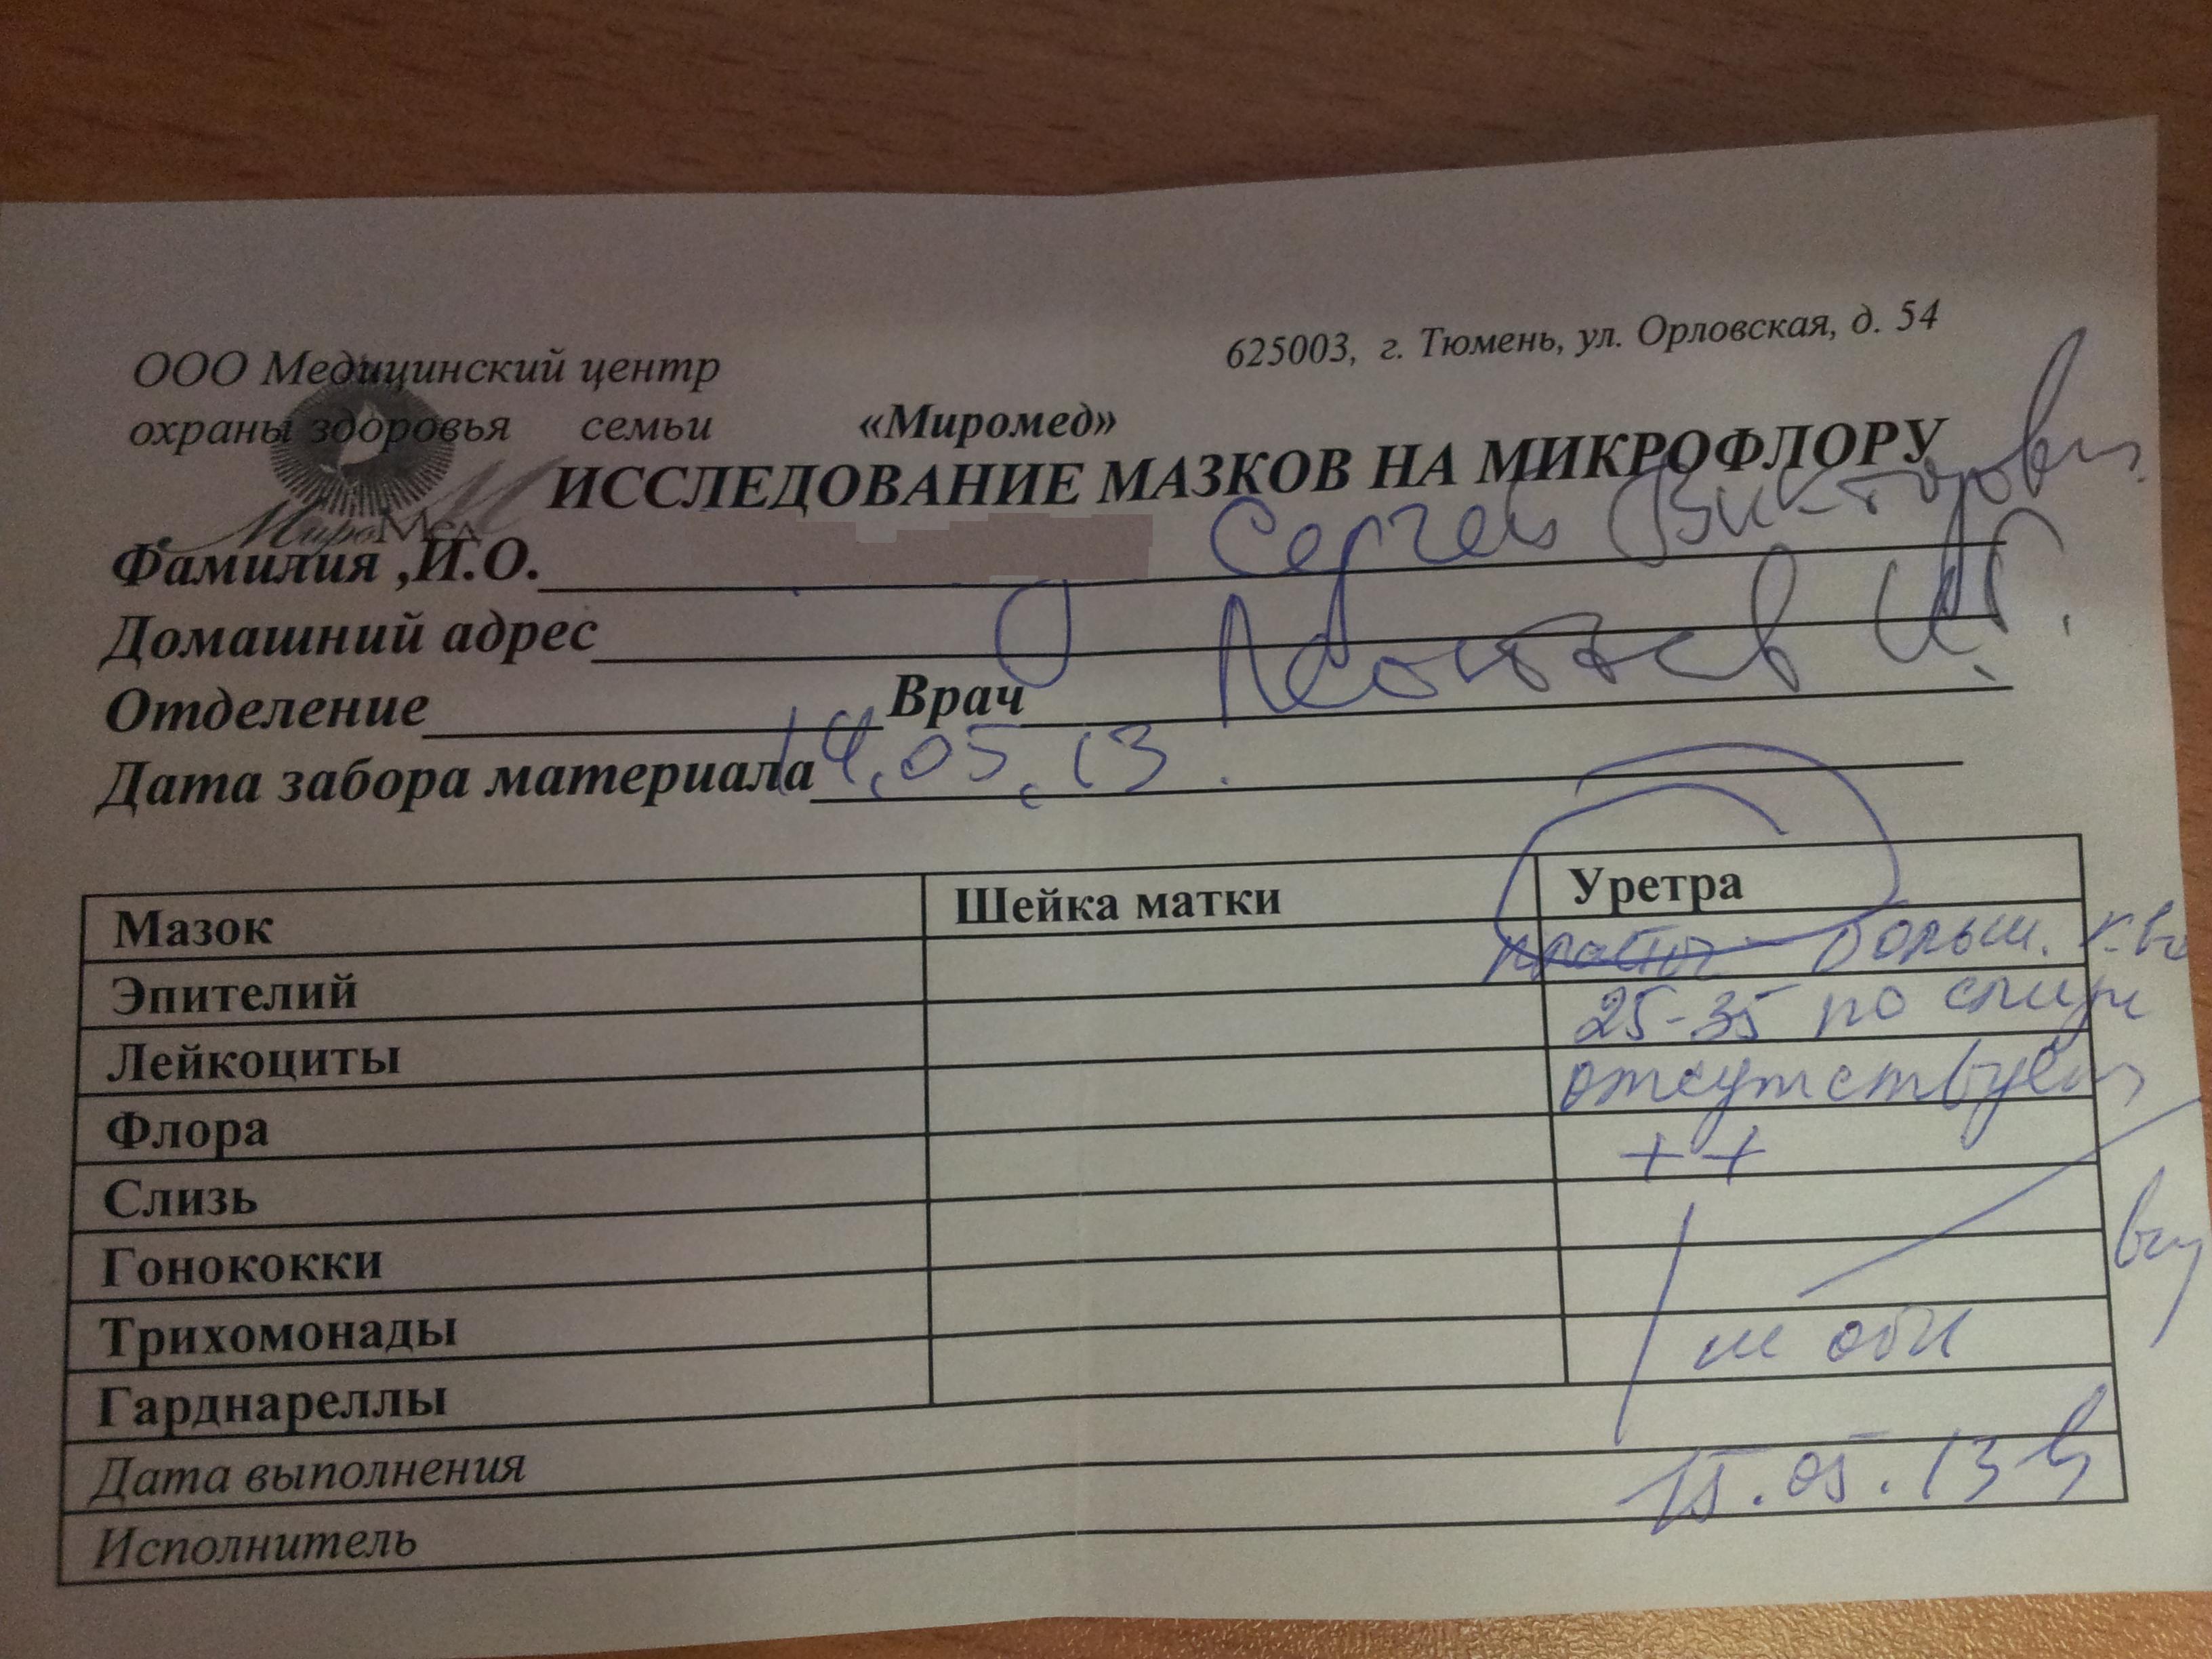 625003, г. Тюмень, ул. Орловская, д. 54
ООО Медицинский центр
охраны здоровья семьи «Миромед»
МироМед
ИССЛЕДОВАНИЕ МАЗКОВ НА МИКРОФЛОРУ
Фамилия ,И.О. Сергей Викторович
Домашний адрес
Отделение Врач
Дата забора материала 14.05.13.
Мазок Шейка матки Уретра
Эпителий больш. к-во
Лейкоциты 25-35 по слизи
Флора отсутствует
Слизь ++
Гонококки
Трихомонады
Гарднареллы не обн
Дата выполнения 15.05.13
Исполнитель